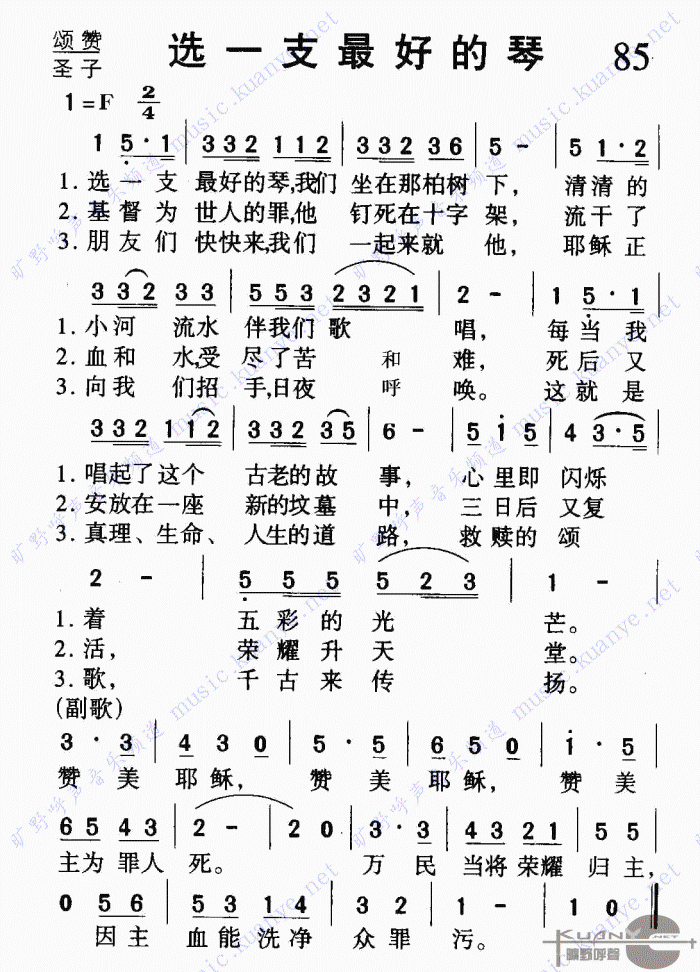 颂赞
圣子
选一支最好的琴 85
1=F 2/4
1 5·1 | 332 112 | 332 36 | 5 - | 51·2
1.选一支 最好的琴,我们 坐在那柏树 下, 清清的
2.基督为 世人的罪,他 钉死在十字 架, 流干了
3.朋友们 快快来,我们 一起来就 他, 耶稣正
332 33 | 553 2321 | 2 - | 1 5·1
1.小河 流水 伴我们 歌 唱, 每当我
2.血和 水,受 尽了苦 和 难, 死后又
3.向我 们招 手,日夜 呼 唤。 这就是
332 112 | 332 35 | 6 - | 5 i 5 | 4 3·5
1.唱起了这个 古老的故 事, 心里即 闪烁
2.安放在一座 新的坟墓 中, 三日后 又复
3.真理、生命、 人生的道 路, 救赎的 颂
2 - | 5 5 5 5 2 3 | 1 -
1.着 五彩的光 芒。
2.活, 荣耀升天 堂。
3.歌, 千古来传 扬。
(副歌)
3·3 | 4 3 0 | 5·5 | 6 5 0 | i·5
赞 美 耶稣, 赞 美 耶稣, 赞 美
65 43 | 2 - | 2 0 | 3·3 | 43 21 | 5 5
主为 罪人 死。 万 民 当将 荣耀 归主,
0 56 | 53 14 | 3 2 | 1 - | 1 0
因主 血能 洗净 众罪 污。
KUANYE.NET
旷野呼声
旷野呼声音乐频道 music.kuanye.net